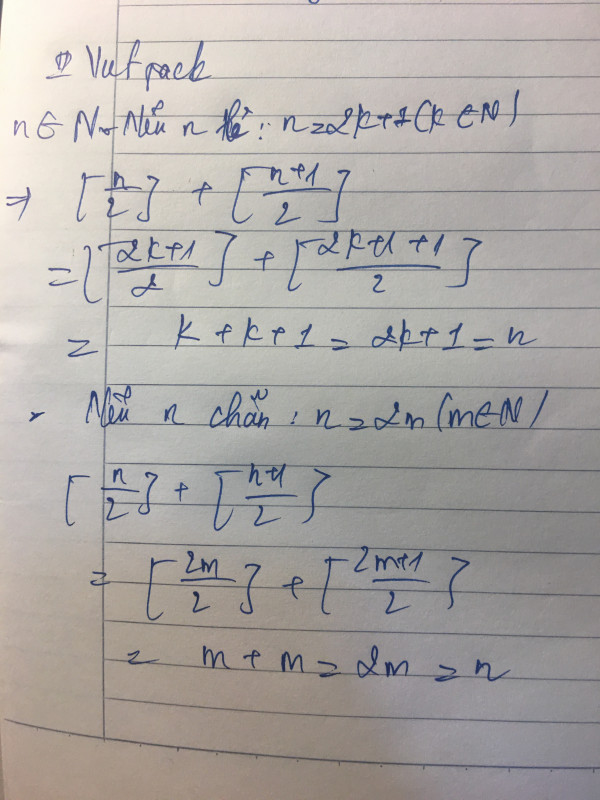 Vutpack
n ∈ N Nếu n lẻ : n = 2k+1 (k ∈ N)
⇒ [n/2] + [(n+1)/2]
= [(2k+1)/2] + [(2k+1+1)/2]
= k + k + 1 = 2k+1 = n
- Nếu n chẵn : n = 2m (m ∈ N)
[n/2] + [(n+1)/2]
= [2m/2] + [(2m+1)/2]
= m + m = 2m = n